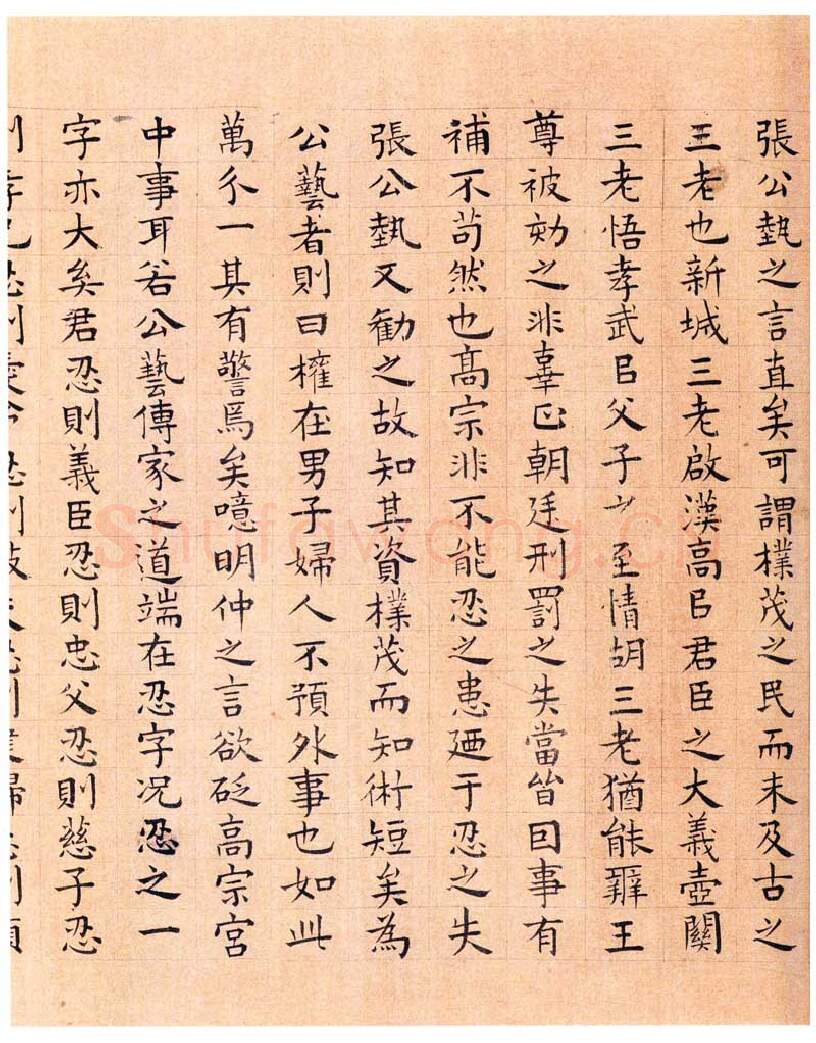 張公埶之言直矣可謂檏茂之民而未及古之
三老也新城三老啟漢高㠯君臣之大義壺關
三老悟孝武㠯父子之至情胡三老猶能辭王
尊被劾之非辜正朝廷刑罰之失當皆因事有
補不苟然也高宗非不能忍之患廼于忍之失
張公埶又勸之故知其資檏茂而知術短矣為
公藝者則曰權在男子婦人不預外事也如此
萬分一其有警焉矣噫明仲之言欲砭高宗宮
中事耳若公藝傳家之道端在忍字况忍之一
字亦大矣君忍則義臣忍則忠父忍則慈子忍
Shufawang.cn